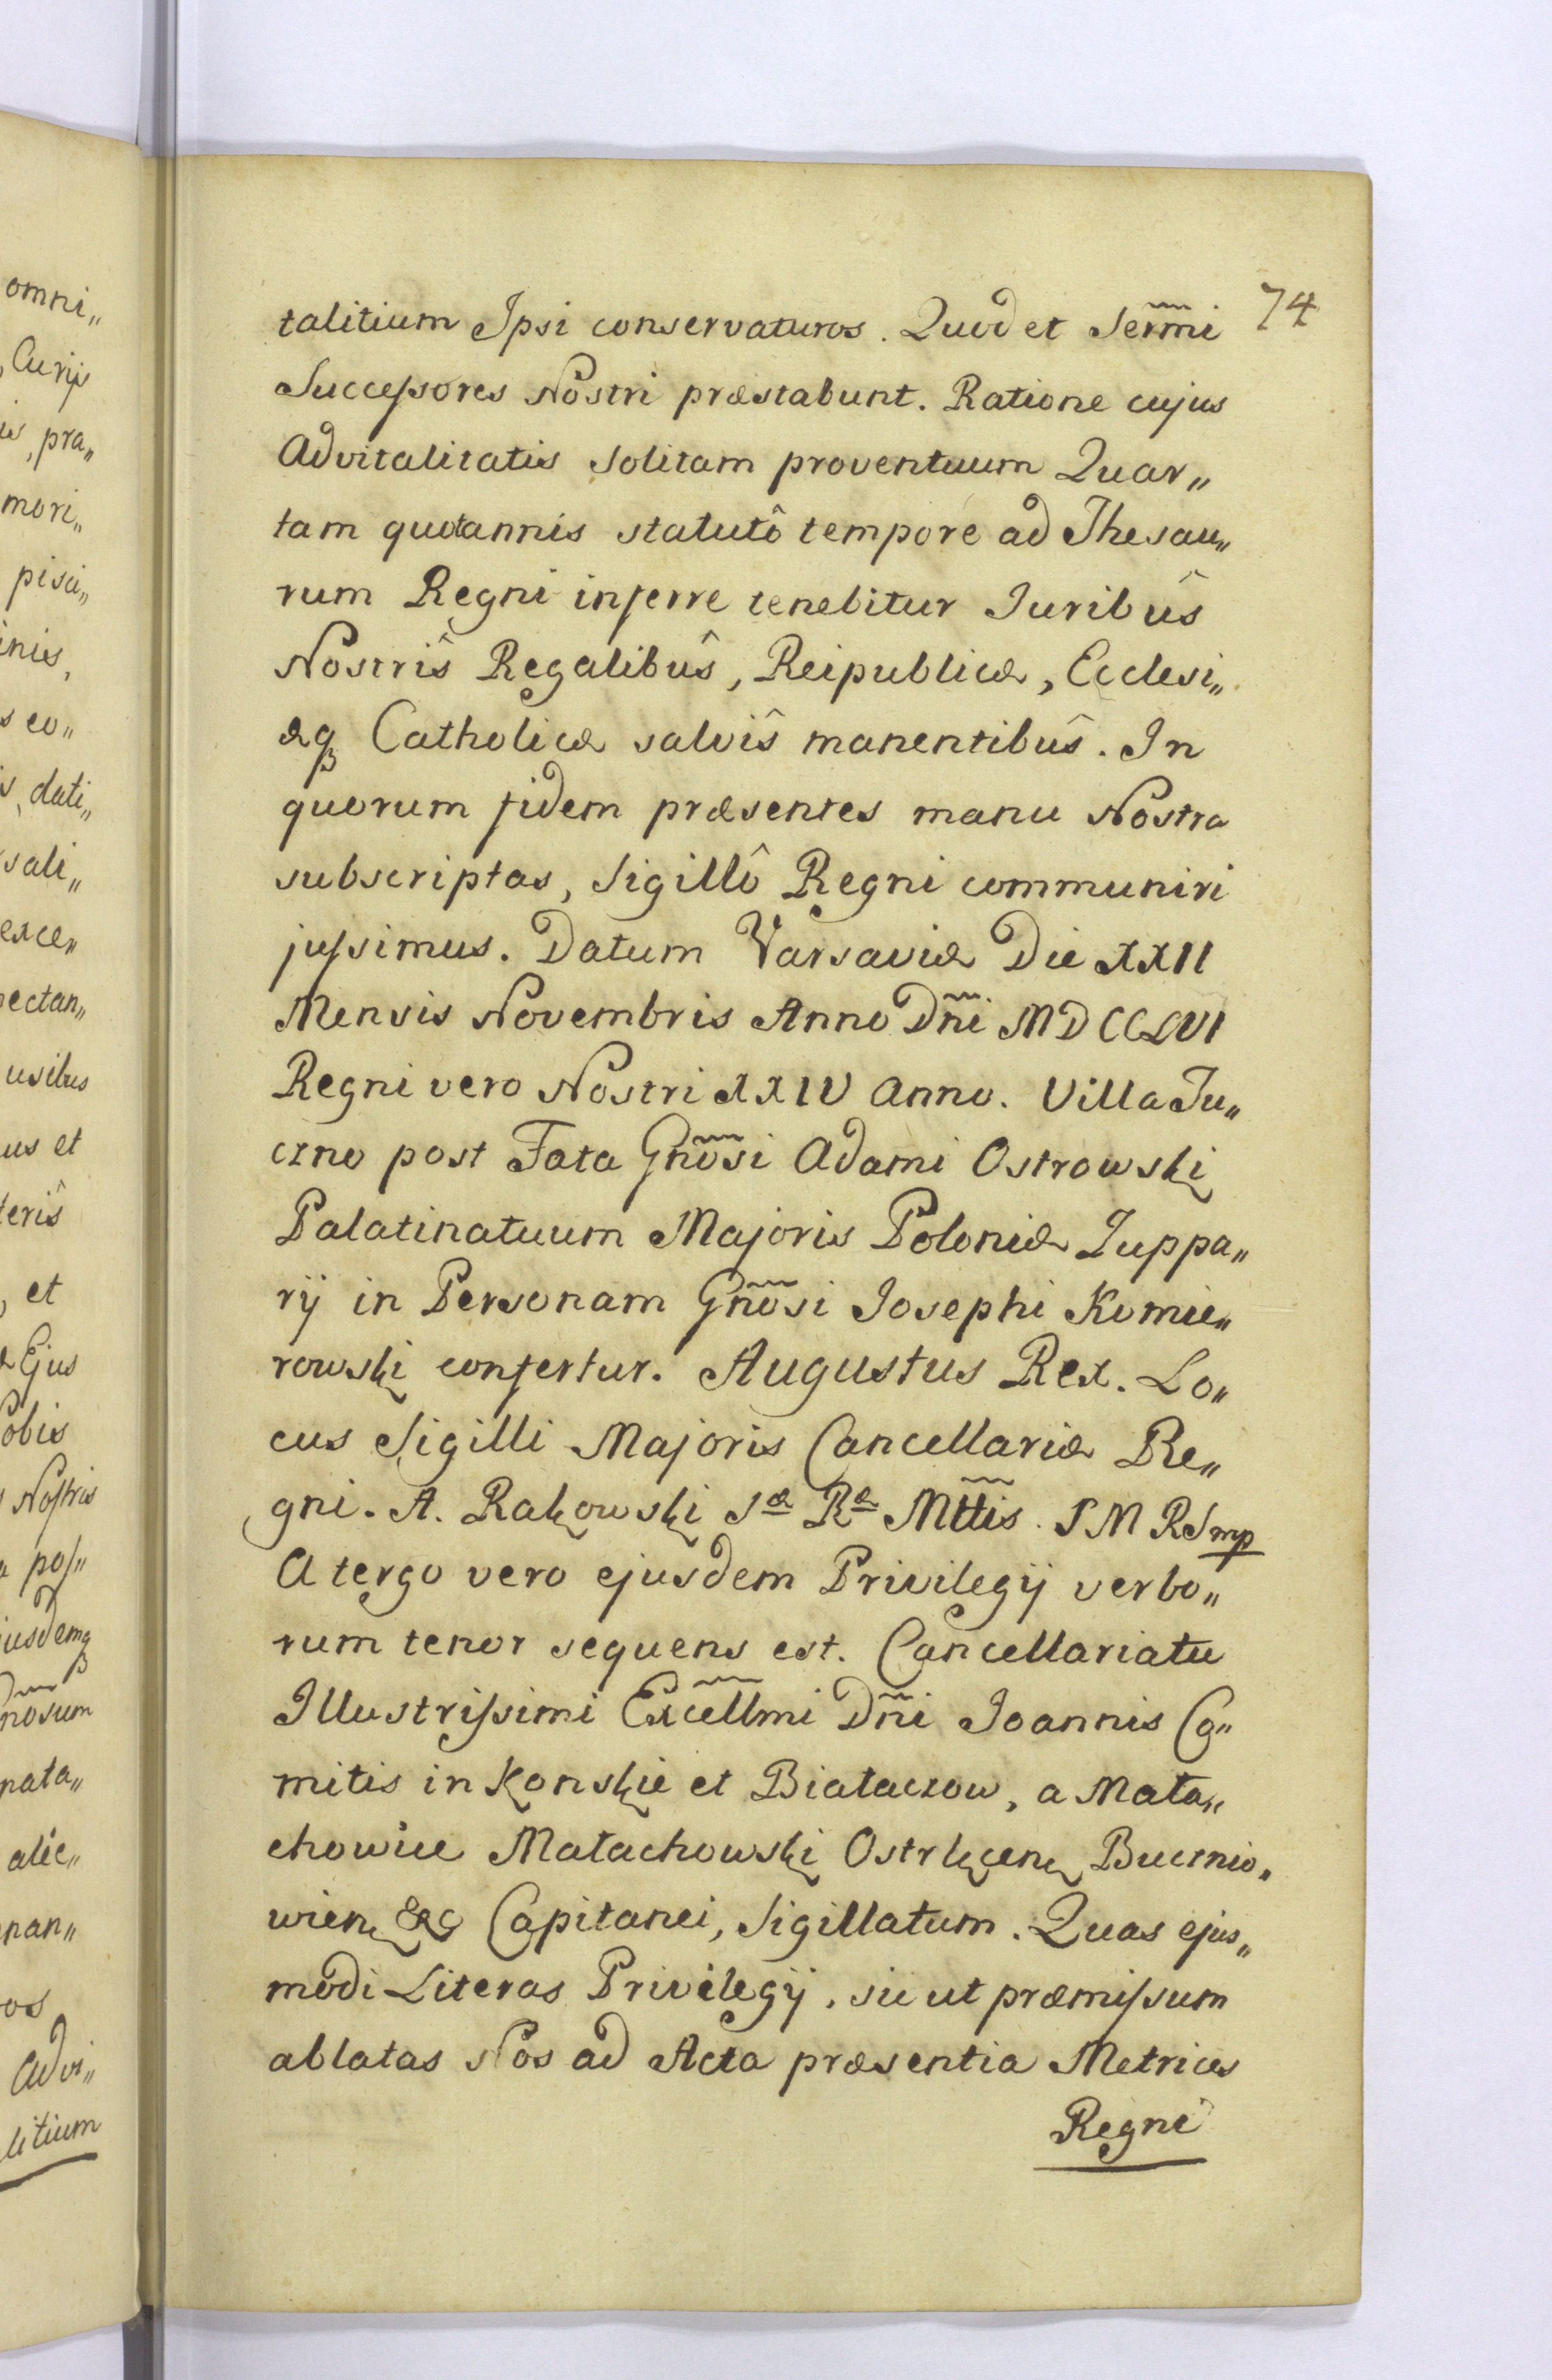 omni„
Curijs
is, pra„
mori„
pisci„
inis,
s co„
s, dati„
sali„
exce„
pectan„
usibus
us et
terîs
, et
æ Ejus
obis
Nostris
pos„
jusdemq
nosum
pata„
alie„
nan„
ros
Advi„
litium
74
talitium Ipsi conservaturos. Quod et Serm̃i
Successores Nostri præstabunt. Ratione cujus
Advitalitatis solitam proventuum Quar„
tam quotannis statutô tempore ad Thesau„
rum Regni inferre tenebitur Juribûs
Nostrîs Regalibûs, Reipublicæ, Ecclesi„
æq Catholicæ salvîs manentibûs. In
quorum fidem præsentes manu Nostra
subscriptas, Sigillô Regni communiri
jussimus. Datum Varsaviæ Die XXII
Mensis Novembris Anno Dñi MDCCLVI
Regni vero Nostri XXIV Anno. Villa Tu„
czno post Fata Gnõsi Adami Ostrowski
Palatinatuum Majoris Poloniæ Zuppa„
rij in Personam Gnõsi Josephi Komie„
rowski confertur. Augustus Rex. Lo„
cus Sigilli Majoris Cancellariæ Re„
gni. A. Rakowski Sæ Ræ Mttis. S M R S mp
A tergo vero ejusdem Privilegij verbo„
rum tenor sequens est. Cancellariatu
Illustrissimi Excellm̃i Dñi Joannis Co„
mitis in Konskie et Białaczow, a Mała„
chowice Małachowski Ostrłęcen Bucznio„
wien &c Capitanei, Sigillatum. Quas ejus„
modi Literas Privilegij, sic ut præmissum
ablatas Nos ad Acta præsentia Metrices
Regni